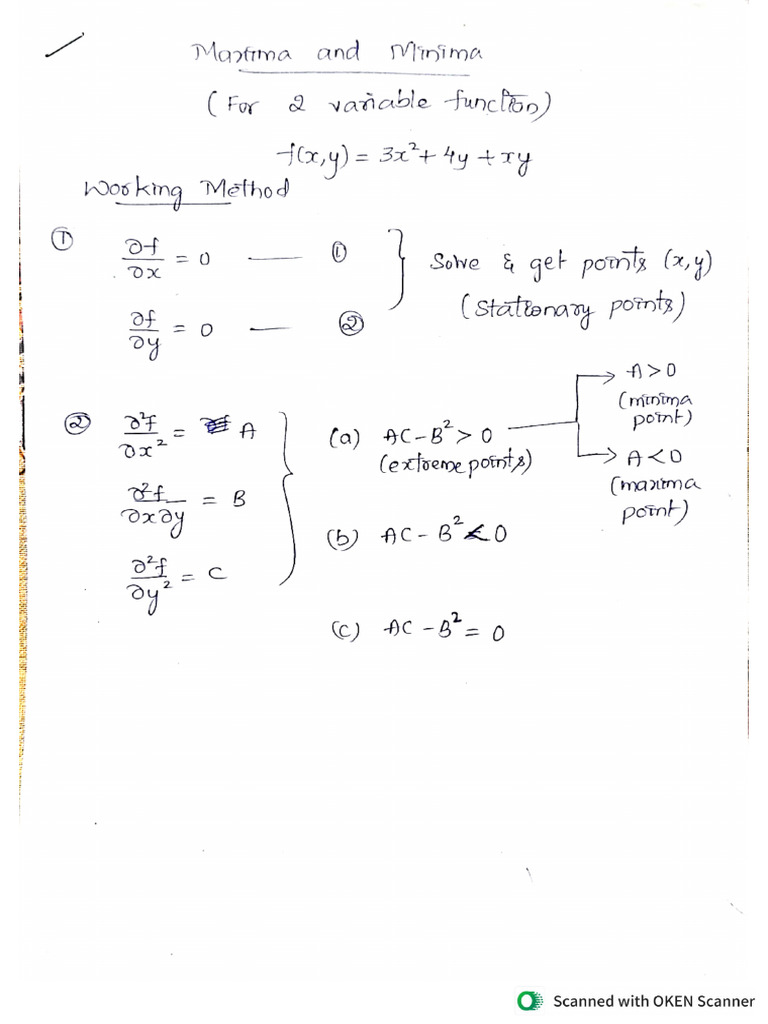 Maxima and Minima
(For 2 variable function)
f(x,y) = 3x² + 4y + xy
Working Method
① ∂f/∂x = 0 —— ①
∂f/∂y = 0 —— ②
Solve & get points (x,y)
(Stationary points)
② ∂²f/∂x² = A
∂²f/∂x∂y = B
∂²f/∂y² = C
(a) AC - B² > 0
(extreme points)
→ A > 0
(minima
point)
→ A < 0
(maxima
point)
(b) AC - B² < 0
(c) AC - B² = 0
Scanned with OKEN Scanner